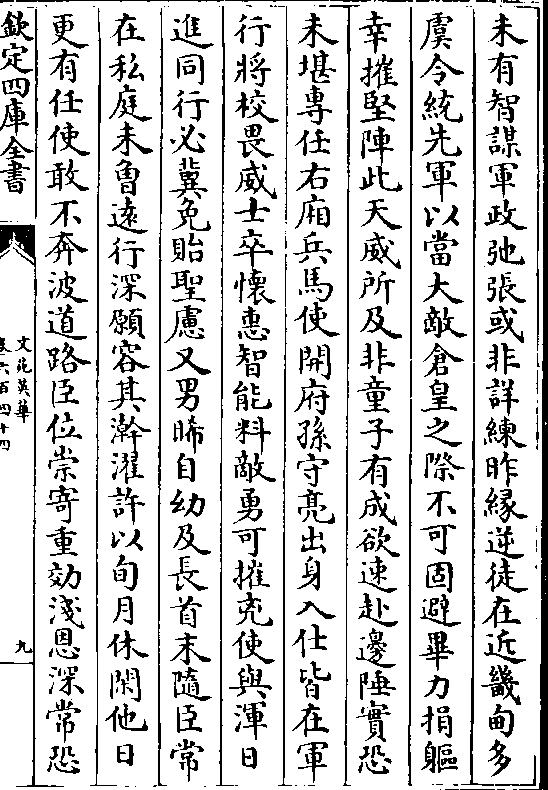 未有智謀軍政弛張或非詳練昨緣逆徒在近畿甸多
虞令統先軍以當大敵倉皇之際不可固避畢力捐軀
幸摧堅陣此天威所及非童子有成欲速赴邊陲實恐
未堪專任右廂兵馬使開府孫守亮出身入仕皆在軍
行將校畏威士卒懷惠智能料敵勇可摧兇使與渾日
進同行必冀免貽聖慮又男晞自幼及長首末隨臣常
在私庭未魯遠行深願容其澣濯許以旬月休閑他日
更有任使敢不奔波道路臣位崇寄重効淺恩深常恐
欽定四庫全書
文苑英華
卷六百四十四
九